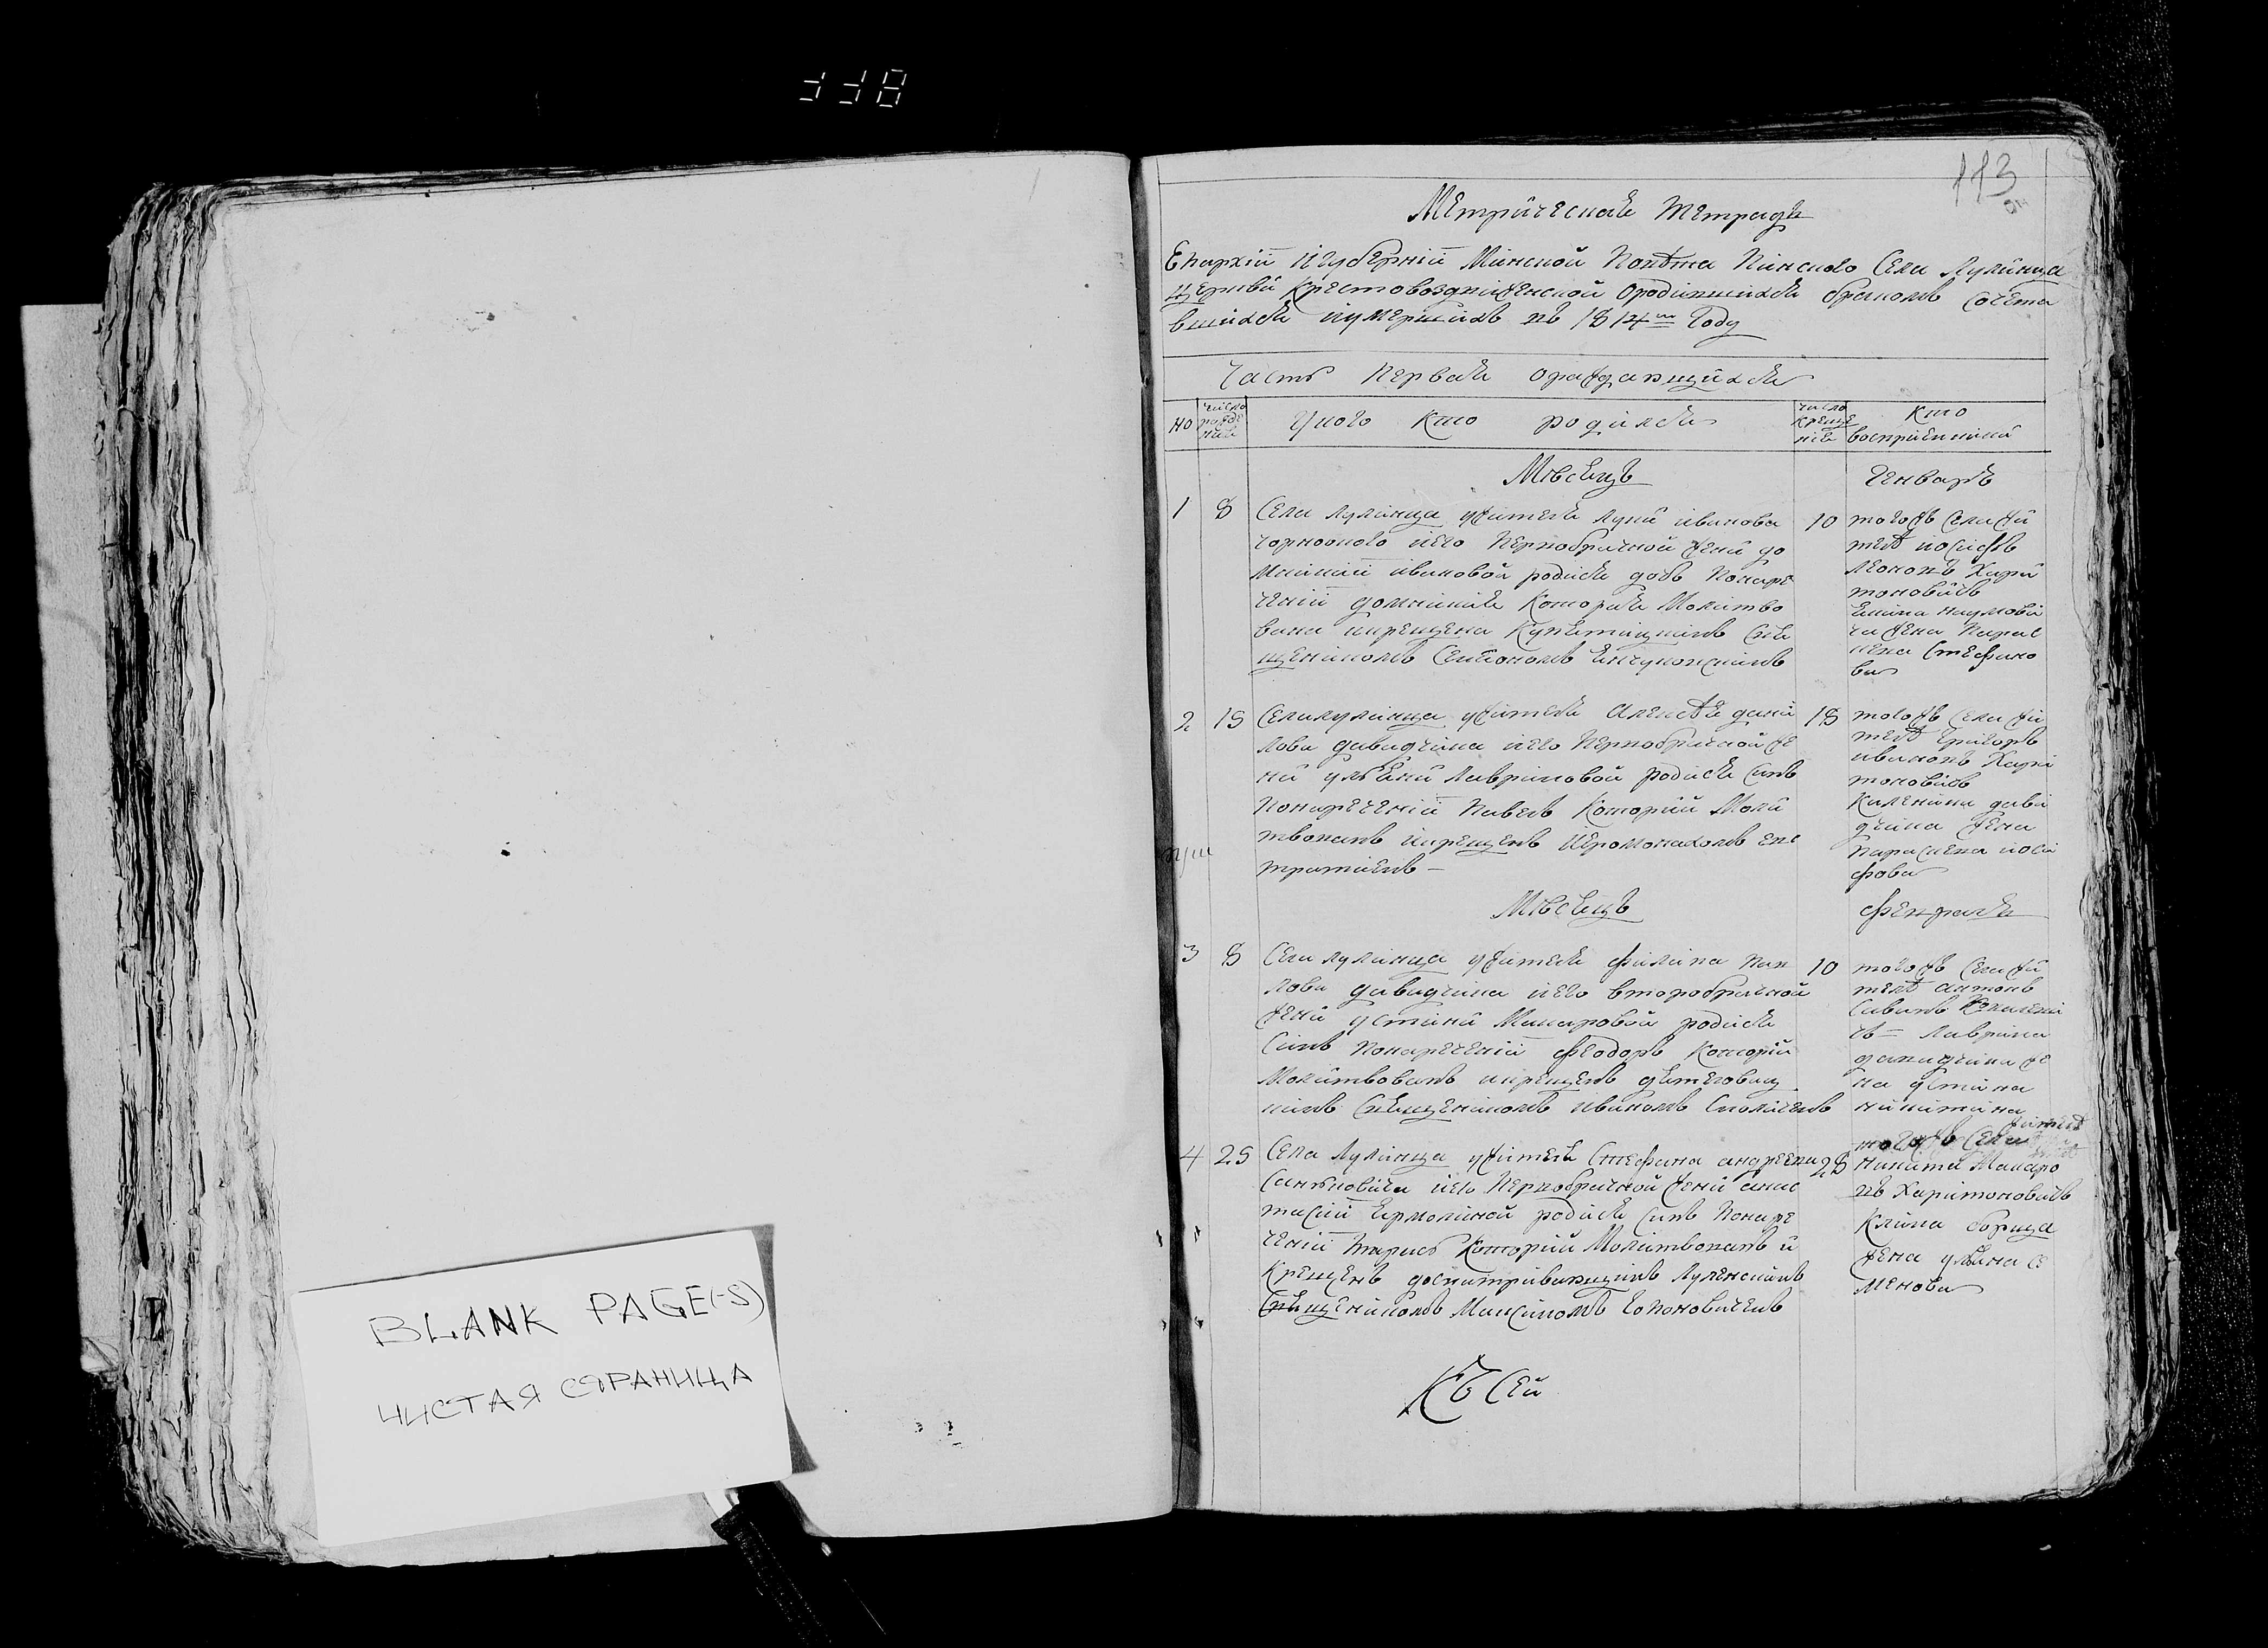 338
113
Метрическая тетрадь
Епархіи и губерніи Минской Повѣта Пинского Села Лулинца
церкви Крестовоздвиженской ородившихся бракомъ сочета
вшихся иумершихъ въ 1814м году
Часть Первая ораждающихся
но
число рожде нія
Укого Кто родился
число креще нія
Кто воспріемники
Мѣсяцъ
Генварь
1 8 Села лулинца ужителя луки иванова
чорноокого иего Первобрачной жени до
мникии ивановой родися дочь Понаре
ченіи домникия Которая Молитво
вана икрещена
щеникомъ Симеономъ
10 тогожъ села жи
тель иосифъ
леоновъ Хари
тоновичъ
наумови
ча жена Парас
кева Стефано
ва
2 15 Села лулинца ужителя Алексѣя дани
лова давидчика иего Первобрачной же
ни улияни лавриновой родися синъ
Понареченіи Павелъ Которий Моли
твованъ икрещенъ Иеромонахомъ евс
тратіемъ
18 тогожъ села жи
тель григоръ
ивановъ Хари
тоновичъ
Каленика давы
дчика жена
параскева иоси
фова
Мѣсяцъ
февраля
3 8 Села лулинца ужителя филипа пав
лова давидчика иего второбрачной
жени устини Макаровой родися
Синъ Понареченіи феодоръ Которій
Молитвованъ икрещенъ дятеловиц
кимъ Священикомъ иваномъ
10 тогожъ села жи
тель антонъ
Савинъ
чъ лаврина
давидчика же
на устина
никитина
4 25 Села Лулинца ужителя Стефана андреева
иего Первобрачной жени анас
тасіи Ермолиной родися синъ Понаре
ченіи тарасъ Которий Молитвованъ и
Крещенъ досматривающимъ
Священикомъ Максимомъ
28 тогожъ Села житель
никита Макаро
въ Харитоновичъ
Клима
жена уляна се
менова
Къ Сей
BLANK PAGE(-S)
ЧИСТАЯ СТРАНИЦА